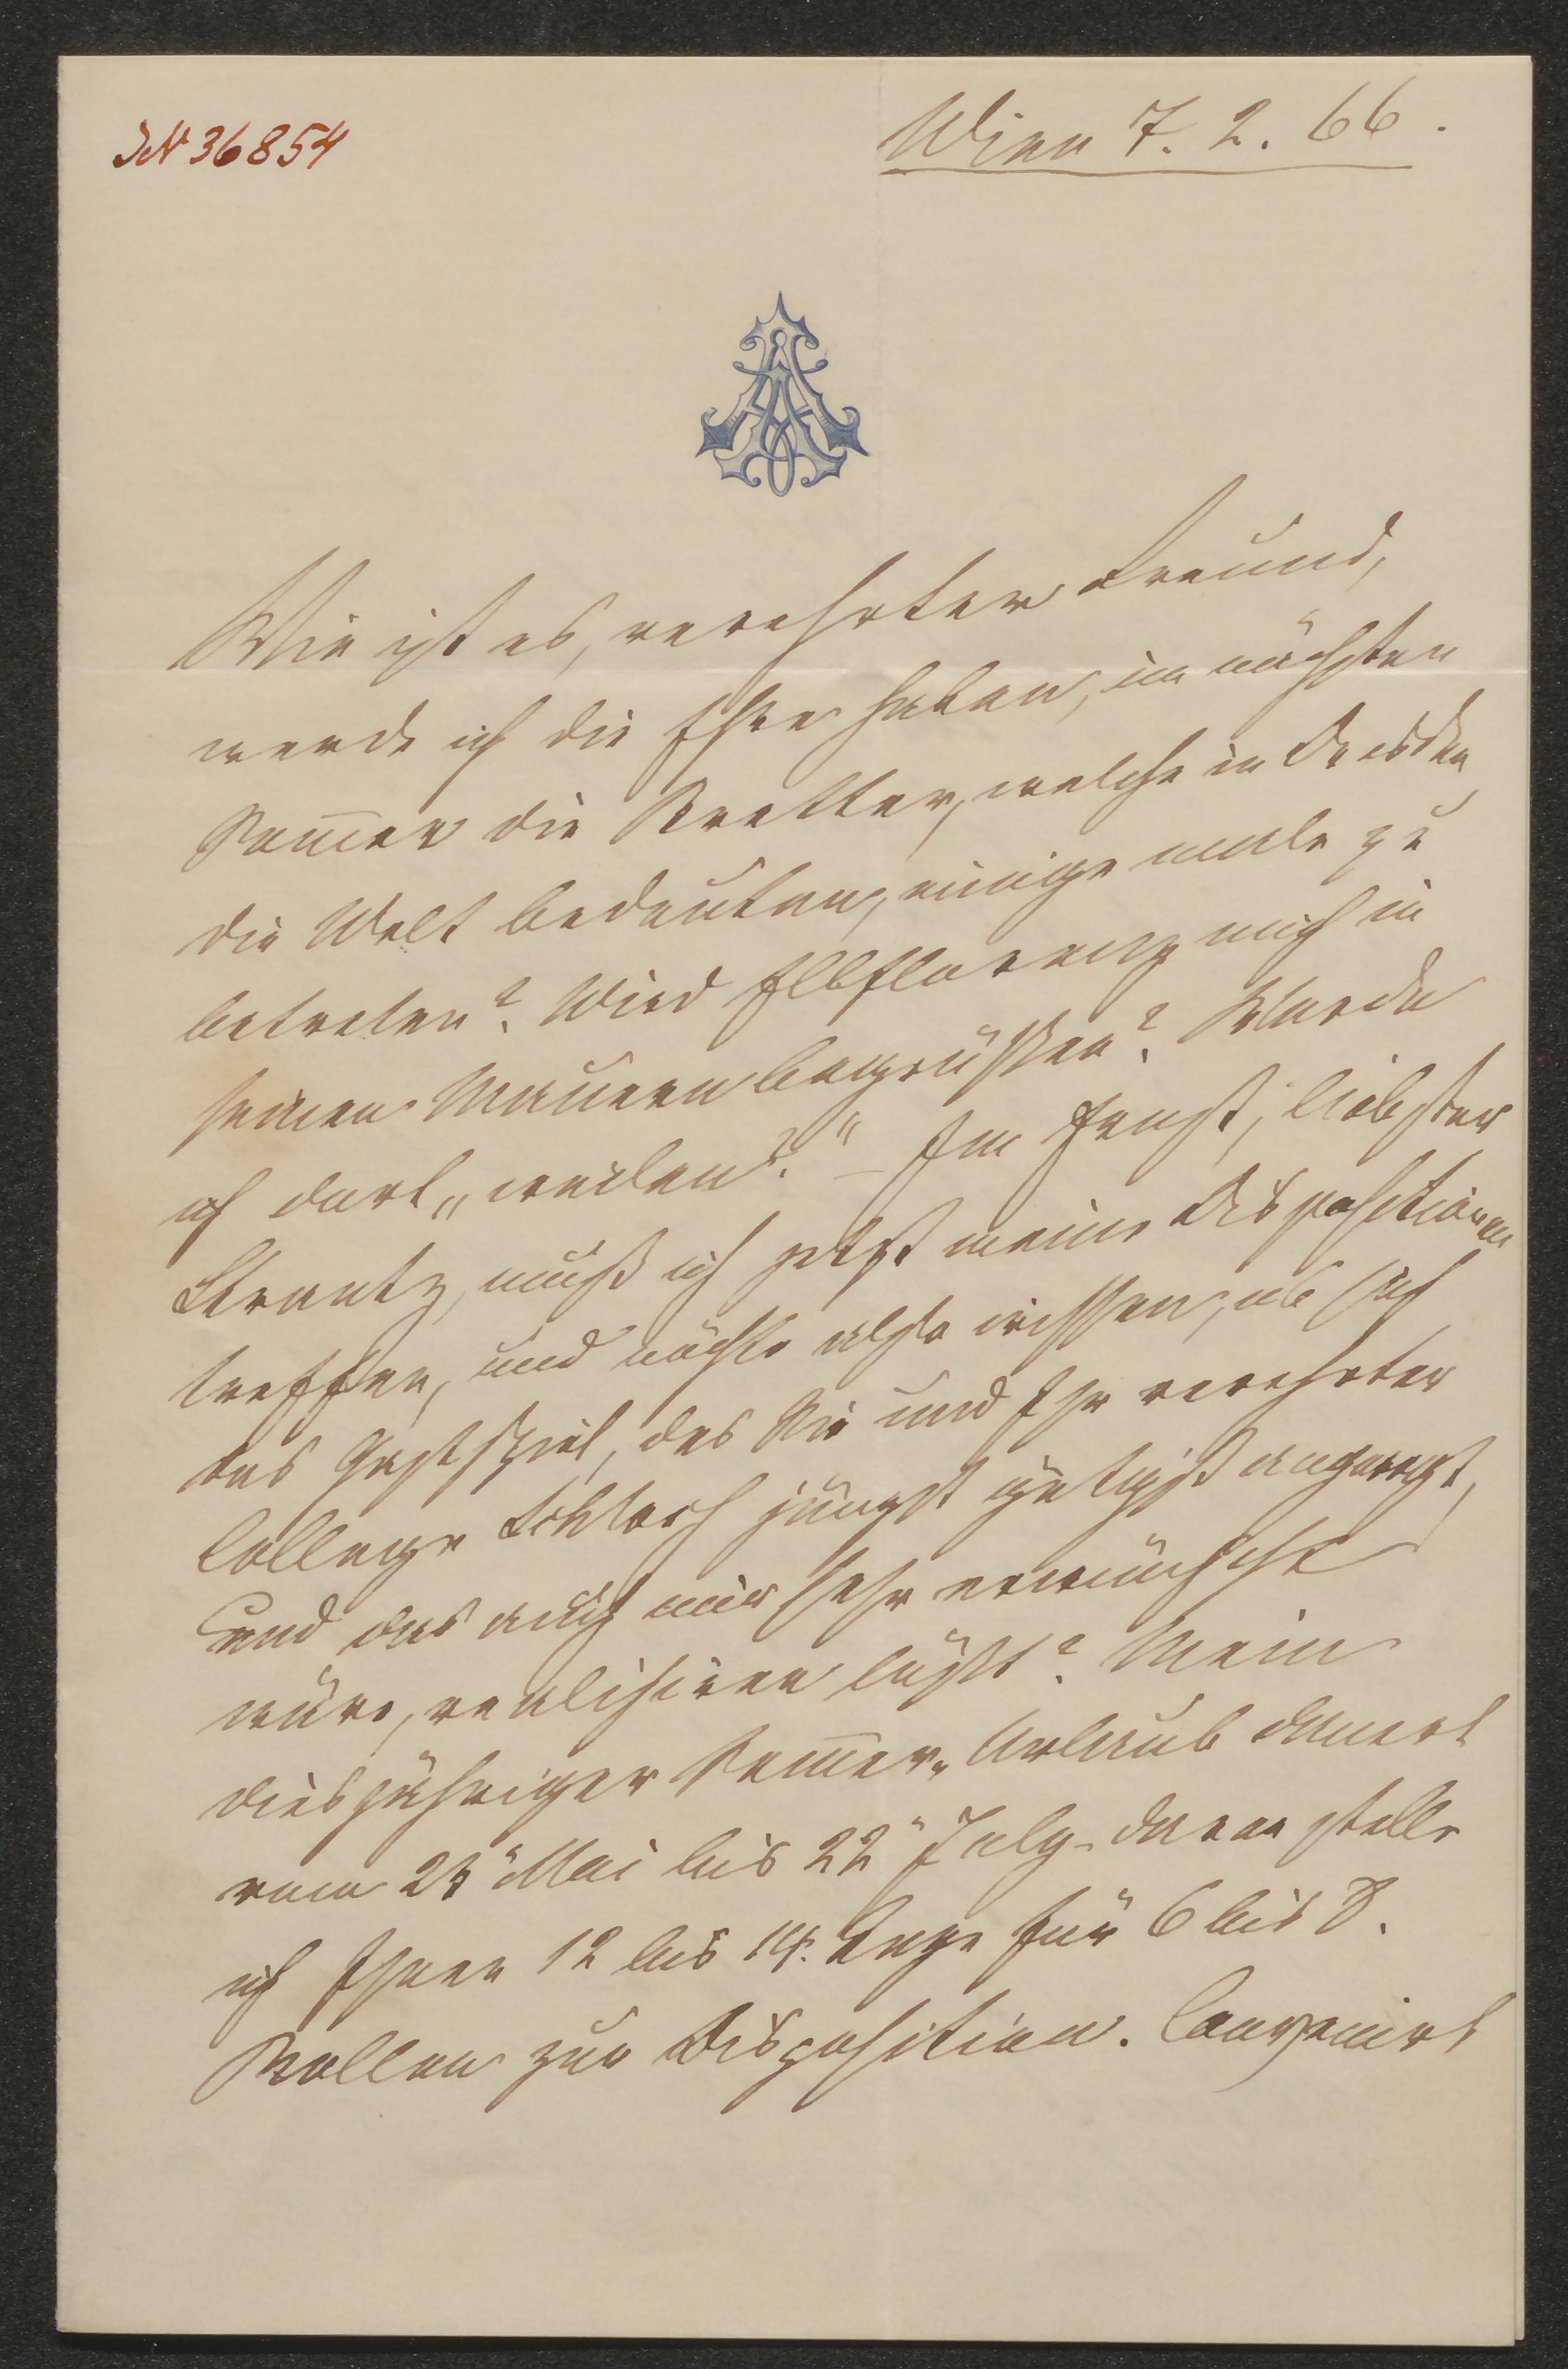 JN 36854
Wien 7. 2. 66.
Wie ist es, verehrter Freund,
werde ich die Ehre haben, im nächsten
Som̅er die Bretter, welche in Dresden
die Welt bedeuten, einige male zu
betreten? Wird Elbflorenz mich in
seinen Mauern begrüßen? Werde
ich dort „weilen?“ – Im Ernst, liebster
Strantz, muß ich jetzt meine Dispositionen
treffen, und möchte also wissen, ob sich
das Gastspiel, das Sie und Ihr verehrter
College jüngst gütigst angeregt,
und das auch mir sehr erwünscht
wäre, realisiren läßt? Mein
diesjähriger Som̅er-Urlaub dauert
vom 25" Mai bis 22" July. Davon stelle
ich Ihnen 12 bis 14. Tage für 6 bis 8.
Rollen zur Disposition. Convenirt